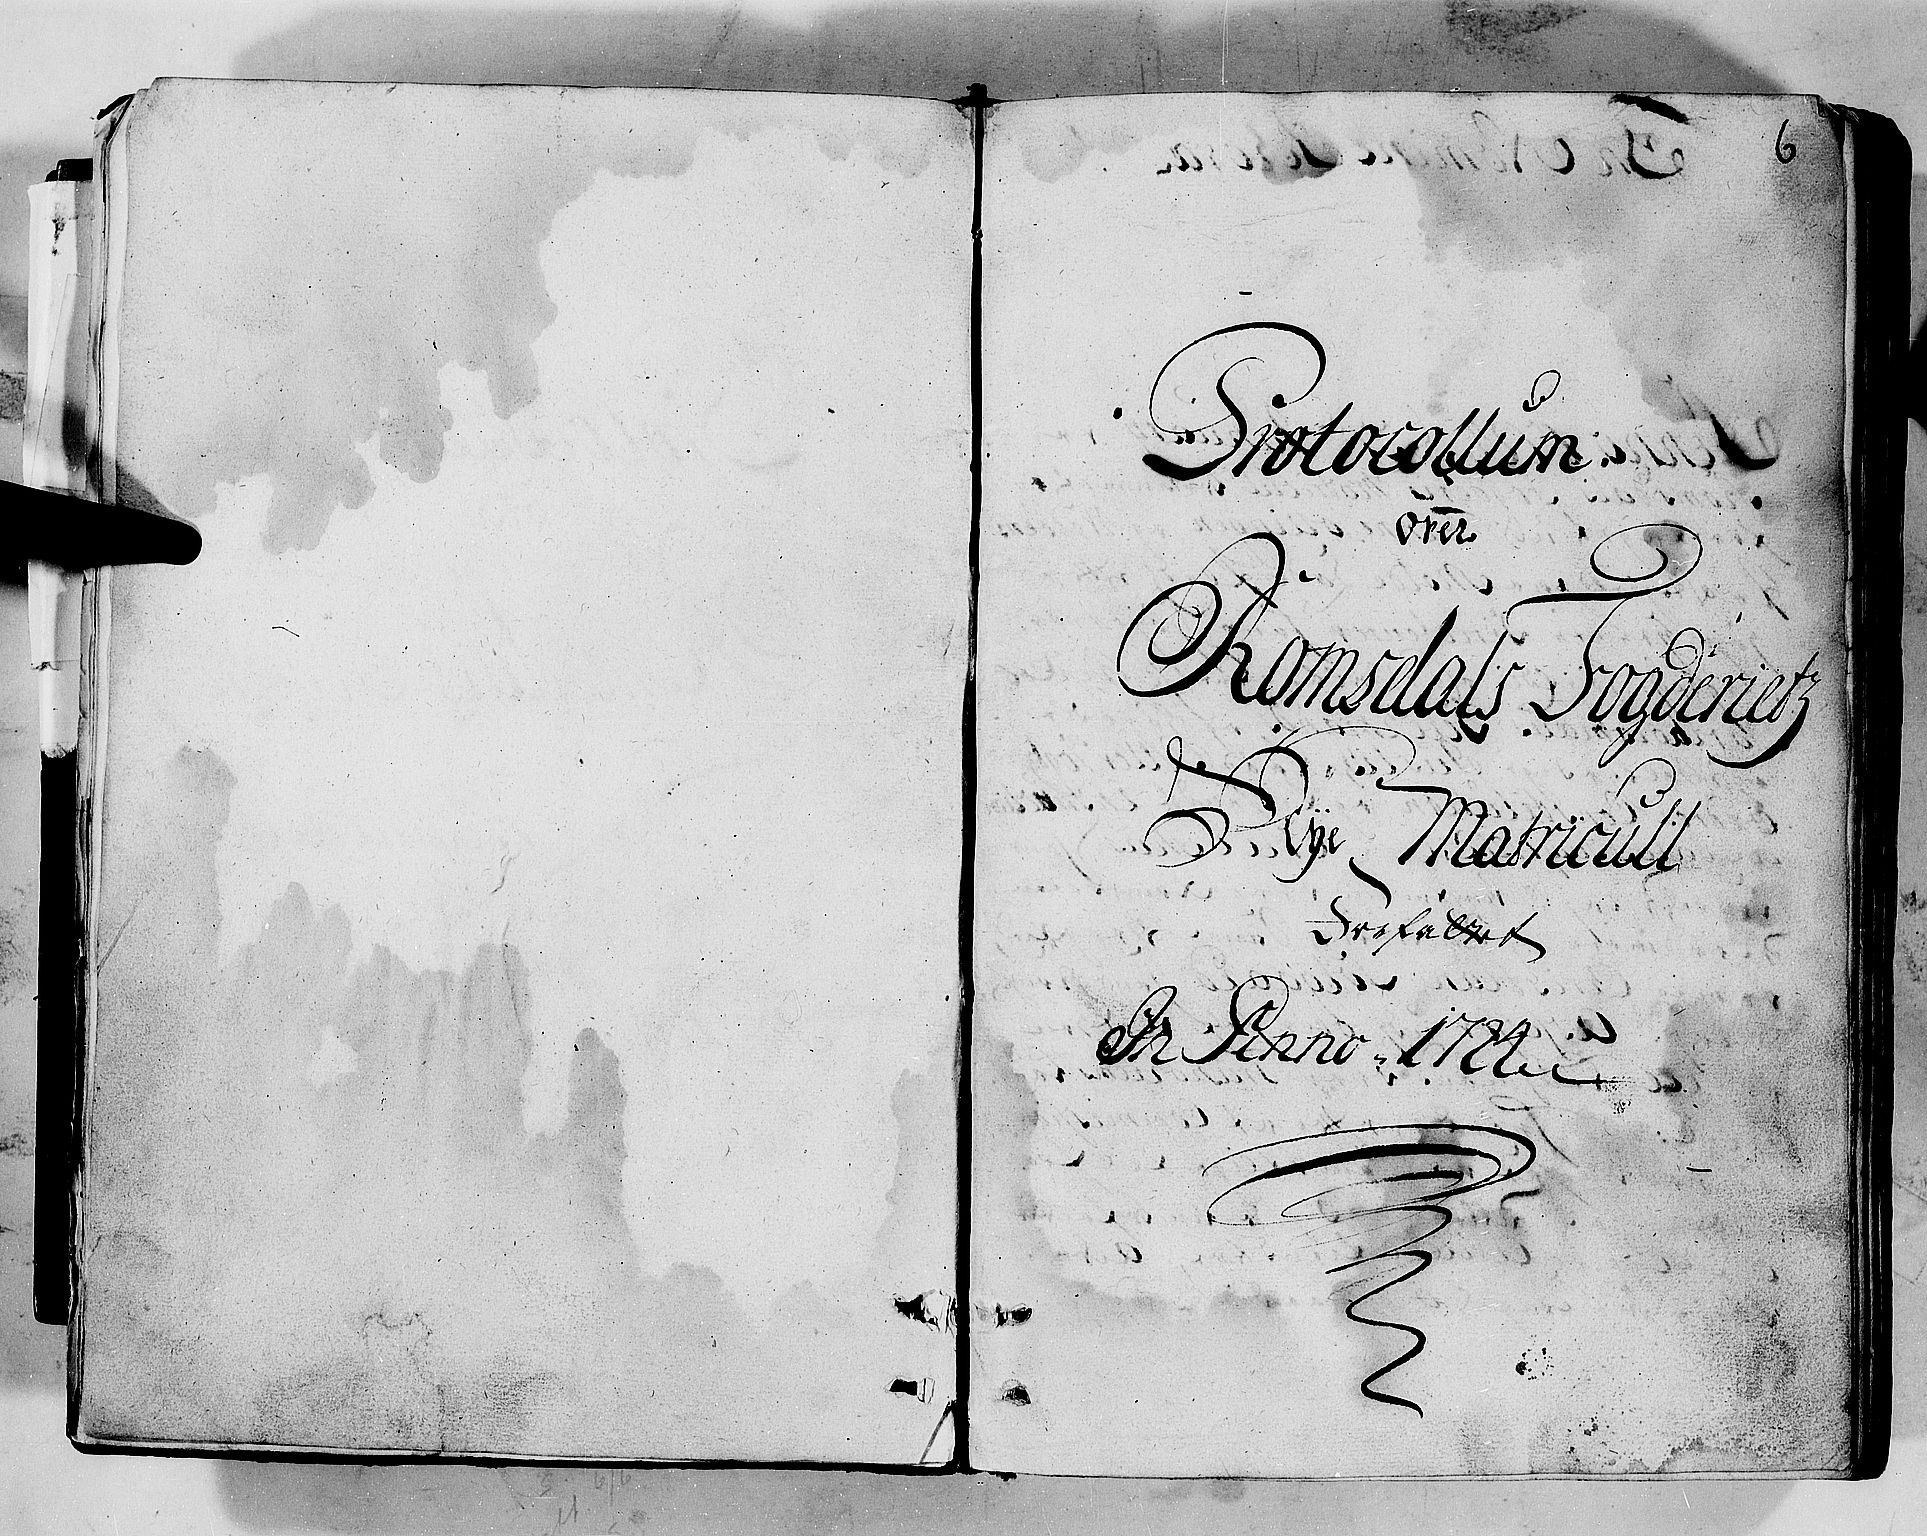 6
Protocollum
over
Romsdals Fogderietz
Nÿe Matricull
Forfattet
In Anno 1724